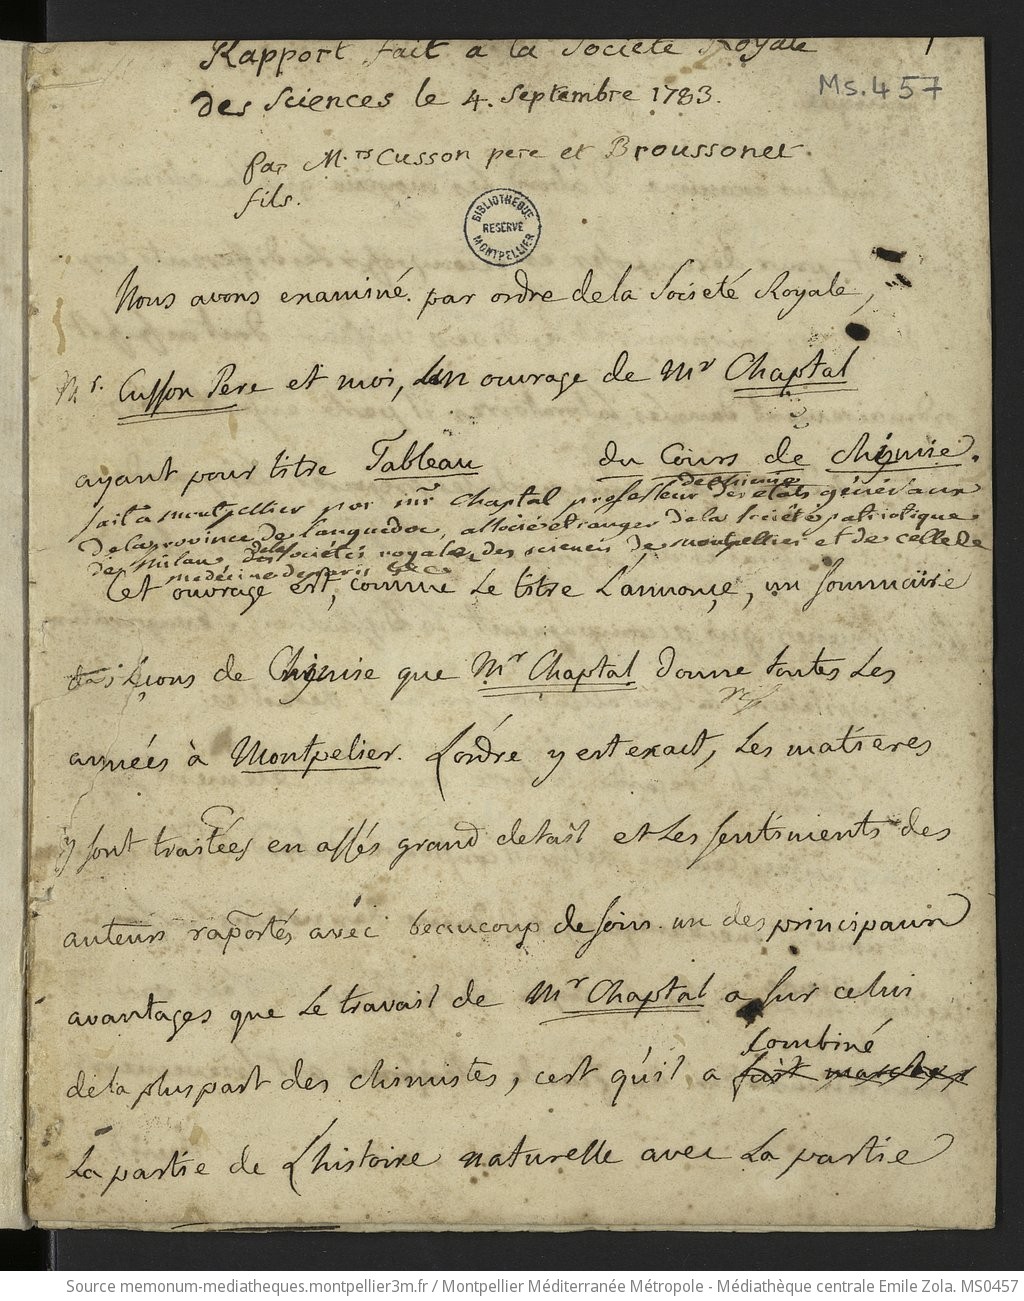 Rapport fait a la Societé Royale
1
des Sciences le 4. Septembre 1783.
Ms. 457
par M.rs Cusson pere et Broussonet
fils.
BIBLIOTHEQUE
RESERVE
MONTPELLIER
Nous avons examiné par ordre de la Societé Royale,
Mr. Cusson Pere et moi, un ouvrage de Mr Chaptal
ayant pour titre Tableau du Cours de chymie.
fait a montpellier par mr Chaptal professeur de chimie des etats généraux
de la province de languedoc, associé etranger de la societé patriotique
de milan de la societé royale des sciences de montpellier et de celle de
medecine de paris &c
Cet ouvrage est, comme Le titre L'annonçe, un sommaire
des Leçons de Chymie que Mr Chaptal donne toutes Les
années à Montpelier. L'ordre y est exact, Les matieres
y sont traitées en assés grand detail et Les sentiments des
auteurs raportés avéc beaucoup de soin. un des principaux
avantages que Le travail de Mr Chaptal a sur celui
de la pluspart des chimistes, c'est qu'il a fait marcher
combiné
La partie de L'histoire naturelle avec La partie
Source memonum-mediatheques.montpellier3m.fr / Montpellier Méditerranée Métropole - Médiathèque centrale Emile Zola. MS0457